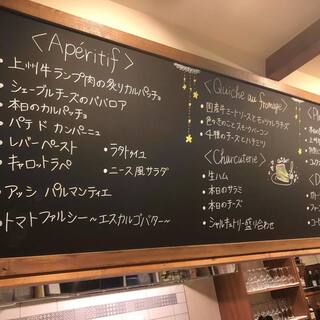 <Apéritif>
・上州牛ランプ肉の炙りカルパッチョ
・シェーブルチーズのババロア
・本日のカルパッチョ
・パテ ド カンパーニュ
・レバーペースト
・ラタトゥイユ
・キャロットラペ
・ニース風サラダ
・アッシ パルマンティエ
・トマトファルシー〜エスカルゴバター〜
<Quiche au fromage>
・国産牛ミートソースとモッツァレラチーズ
・色々きのことスモークベーコン
・4種のチーズとハチミツ
<Charcuterie>
・生ハム
・本日のサラミ
・本日のチーズ
・シャルキュトリー盛り合わせ